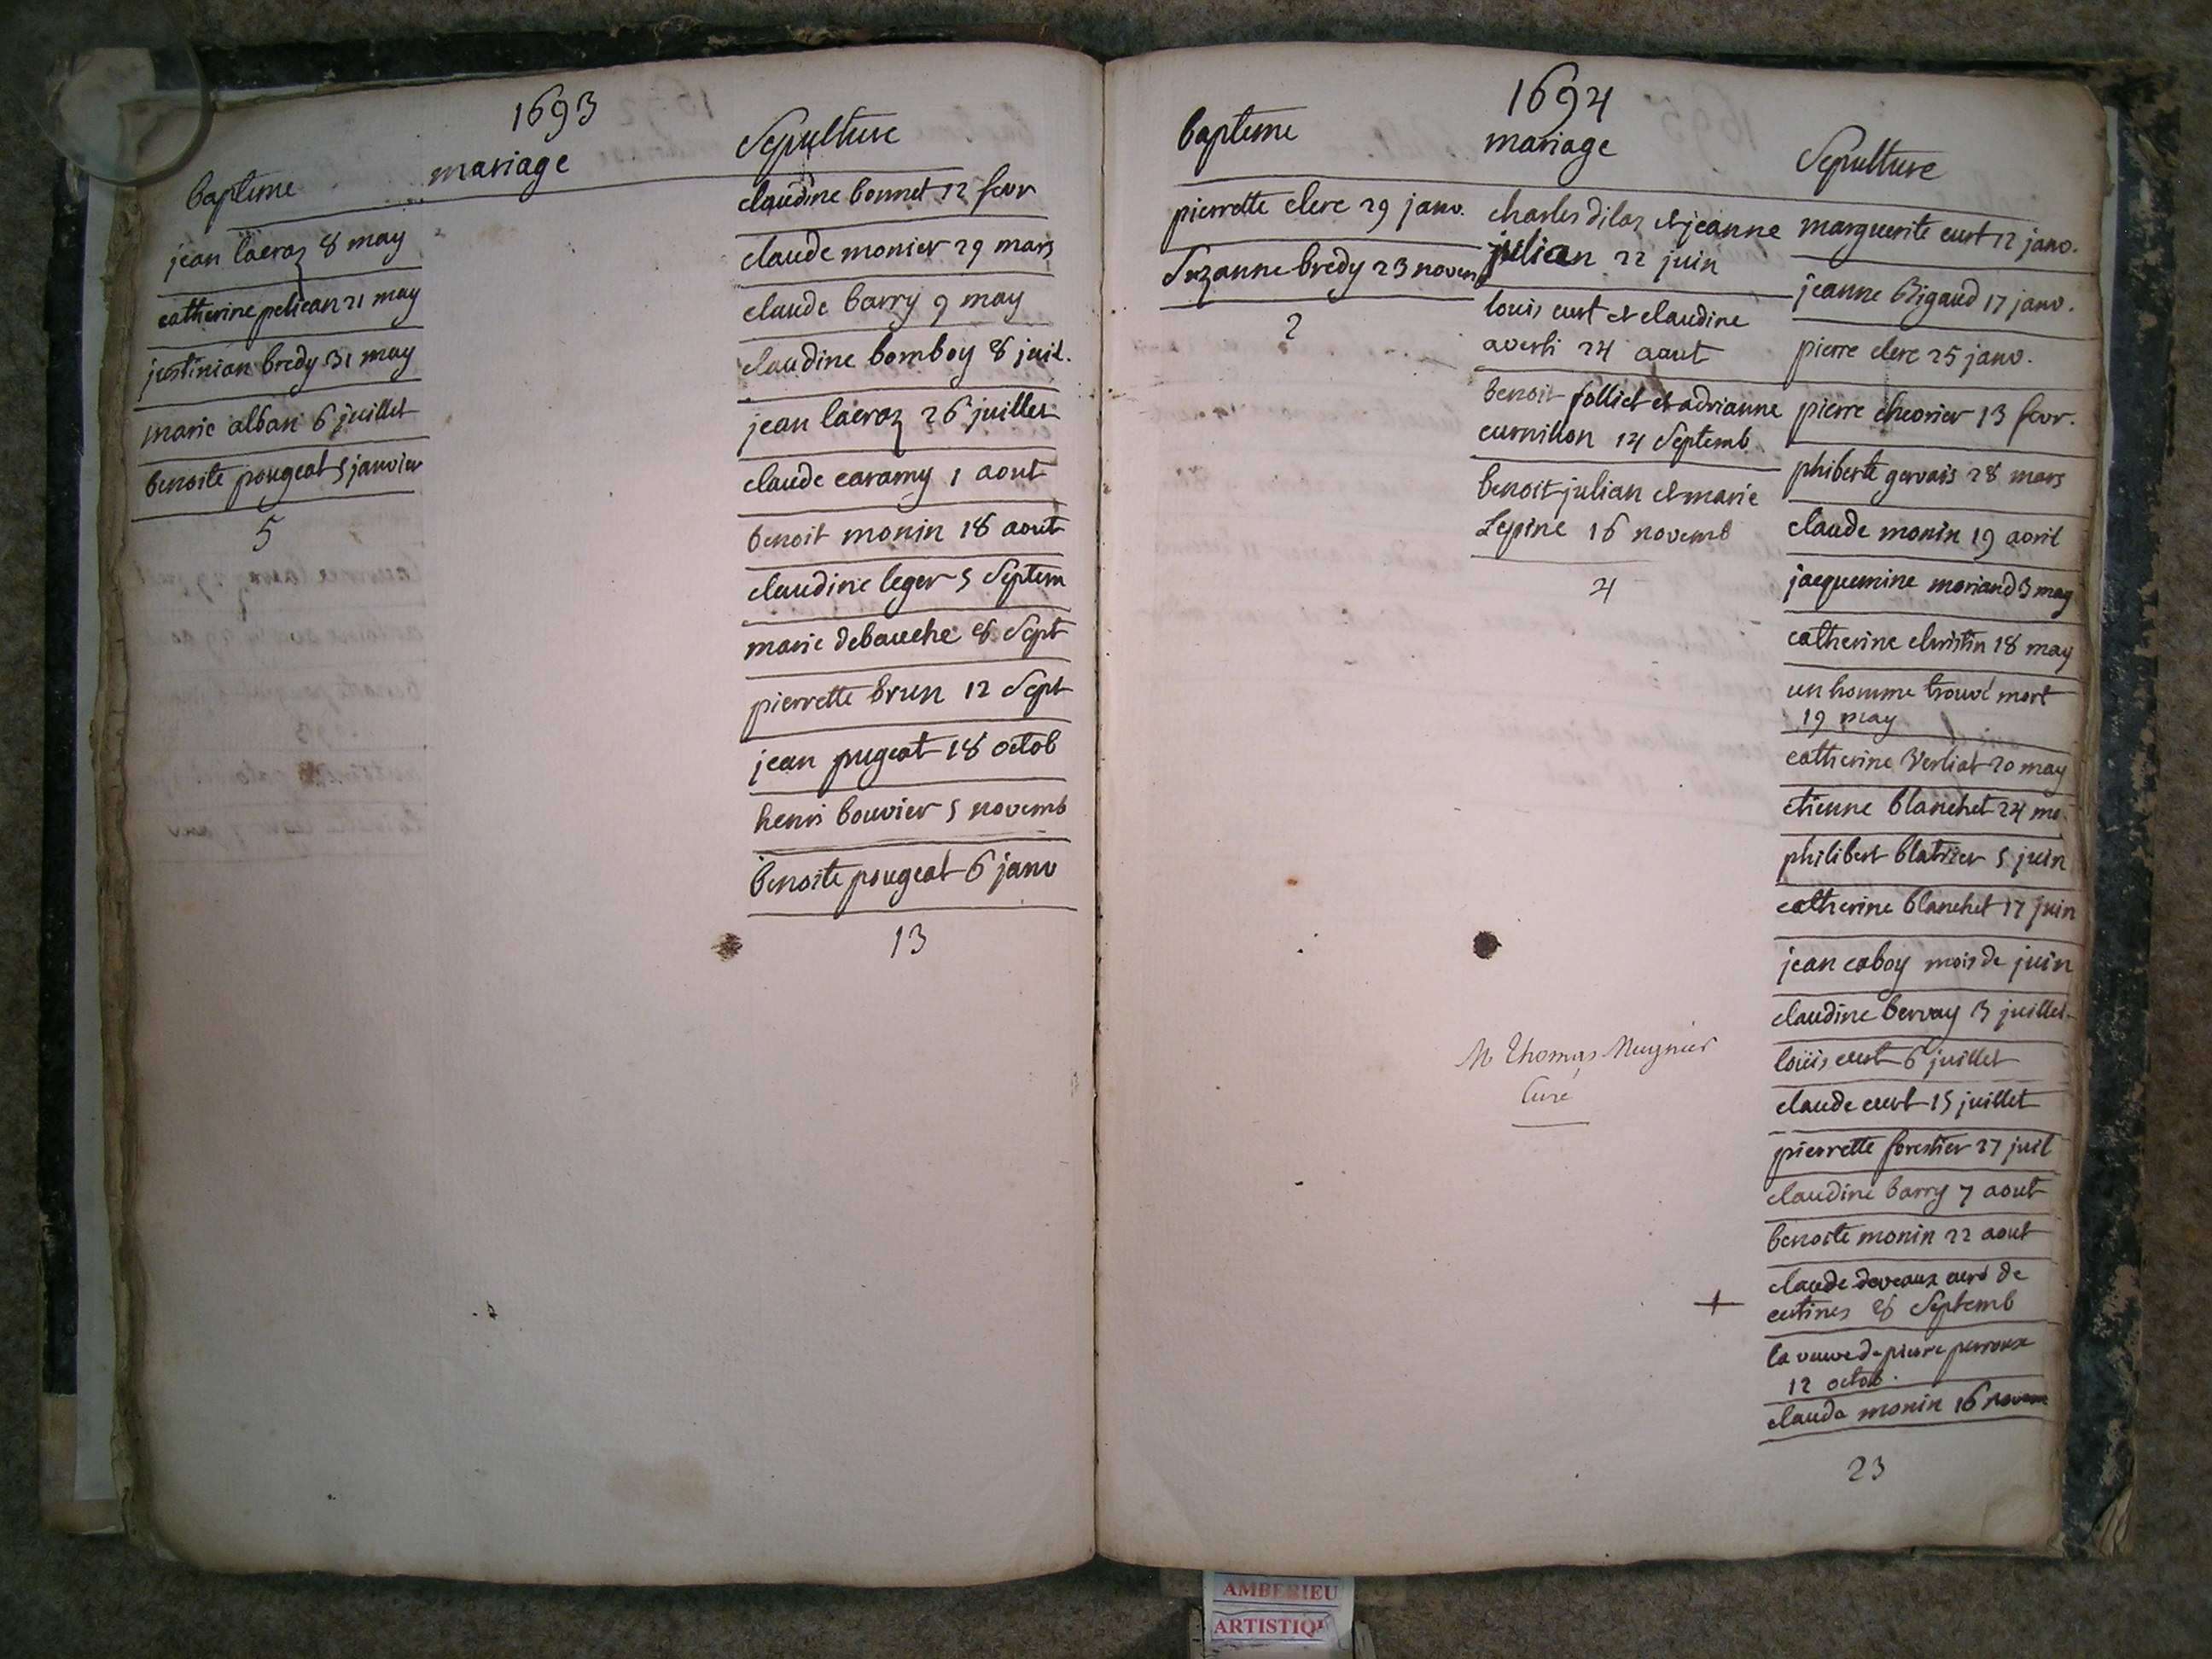 1693
bapteme
jean lacroz 8 may
catherine pelican 21 may
justinian bredy 31 may
marie alban 6 juillet
benoite pougeat 5 janvier
5
mariage
Sepulture
claudine bonnet 12 fevr
claude monier 29 mars
claude barry 9 may
claudine bomboy 8 juil.
jean lacroz 26 juillet
claude caramy 1 aout
benoit monin 18 aout
claudine leger 5 Septem
marie debauche 8 Sept
pierrette brun 12 Sept
jean pugeat 18 octob
henri bouvier 5 novemb
benoite pougeat 6 janv
13
1694
bapteme
pierrette clerc 29 janv.
Suzanne bredy 23 novem
2
mariage
charles dilaz et jeanne
julian 22 juin
louis cust et claudine
averli 24 aout
benoit folliet et adrianne
curnillon 14 Septemb
benoit julian et marie
Lepine 16 novemb
4
M Thomas Mugnier
Curé
Sepulture
marguerite cust 12 janv.
jeanne Brigaud 17 janv.
pierre clerc 25 janv.
pierre chevrier 13 fevr.
phiberte gervais 28 mars
claude monin 19 avril
jacquemine moriand 3 may
catherine christin 18 may
un homme trouvé mort
19 may
catherine Verliat 20 may
etienne blanchet 24 ma
philibert blatrier 5 juin
catherine blanchet 17 juin
jean caboy mois de juin
claudine bervay 3 juillet
louis cust 6 juillet
claude cust 15 juillet
pierrette forestier 27 juil
claudine barry 7 aout
benoite monin 22 aout
claude deveaux curé de
cutines 28 Septemb
la veuve de pierre perroux
12 octob.
claude monin 16 novem
23
AMBERIEU
ARTISTIQU